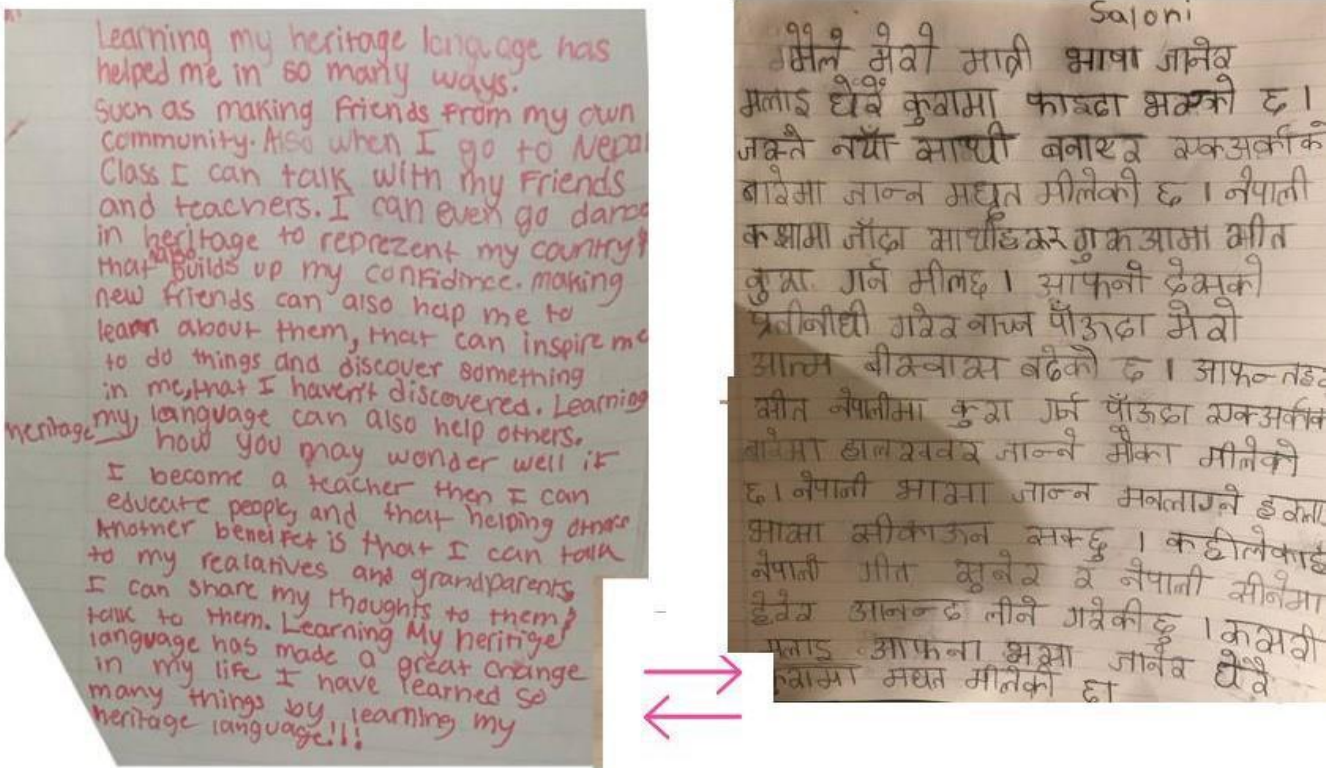 Learning my heritage language has
helped me in so many ways.
Such as making friends from my own
community. Also when I go to Nepal
Class I can talk with my Friends
and teachers. I can even go dance
in heritage to reprezent my country &
that also builds up my confidince. making
new friends can also help me to
learn about them, that can inspire me
to do things and discover something
in me, that I haven't discovered. Learning
my heritage language can also help others.
how you may wonder well if
I become a teacher then I can
educate people, and that helping others
Another benelfet is that I can talk
to my realatives and grandparents
I can share my thoughts to them &
talk to them. Learning My heritige
language has made a great change
in my life I have learned so
many things by learning my
heritage language!!!
Saloni
मैले मेरो मात्री भाषा जानेर
मलाइ धेरै कुरामा फाइदा भएको छ ।
जस्तै नयाँ साथी बनाएर एकअर्काको
बारेमा जान्न मद्यत मीलेको छ । नेपाली
कक्षामा जाँदा साथीहरू र गुरूआमा सीत
कुरा गर्न मीलछ । आफनो देसको
प्रतीनीधी गरेर नाच्न पाँऊदा मेरो
आत्म बीस्वास बढेको छ । आफन्तहरु
सीत नेपालीमा कुरा गर्न पाँऊदा एकअर्काको
बारेमा हालखवर जान्ने मौका मीलेको
छ । नेपाली भासा जान्न मनलाग्ने हरुलाइ
भासा सीकाऊन सक्छु । कहीलेकाही
नेपाली गीत सुनेर र नेपाली सीनेमा
हेरेर आनन्द लीने गरेकीछु । कसरी
मलाइ आफना भासा जानेर धेरै
कुरामा मद्यत मीलेको छ।